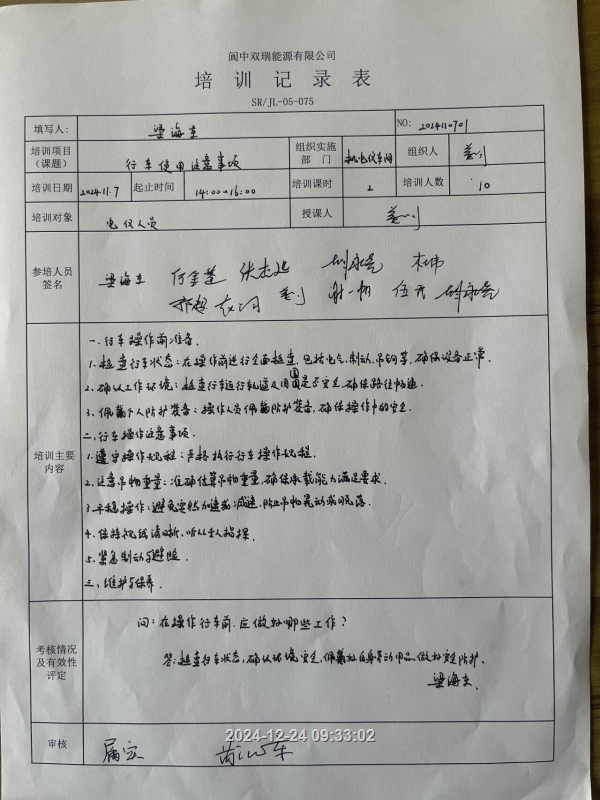 阆中双瑞能源有限公司
培训记录表
SR/JL-05-075
填写人: 梁海东 NO: 2024110701
培训项目（课题） 行车使用注意事项 组织实施部门 机电仪车间 组织人
培训日期 2024.11.7 起止时间 14:00~16:00 培训课时 2 培训人数 10
培训对象 电仪人员 授课人
参培人员签名 梁海东
培训主要内容
一.行车操作前准备.
1.检查行车状态:在操作前进行全面检查,包括电气,制动,吊钩等,确保设备正常.
2.确认工作环境:检查行车运行轨道及周围是否安全,确保路径畅通.
3.佩戴个人防护装备:操作人员佩戴防护装备,确保操作中的安全.
二.行车操作注意事项.
1.遵守操作规程:严格执行行车操作规程.
2.注意吊物重量:准确估算吊物重量,确保承载能力满足要求.
3.平稳操作:避免突然加速或减速,防止吊物晃动或脱落.
4.保持视线清晰、听从专人指挥.
5.紧急制动与避险.
三、维护与保养.
考核情况及有效性评定
问:在操作行车前,应做好哪些工作?
答:检查行车状态,确认环境安全,佩戴好自身劳动用品,做好安全防护.
梁海东.
2024-12-24 09:33:02
审核